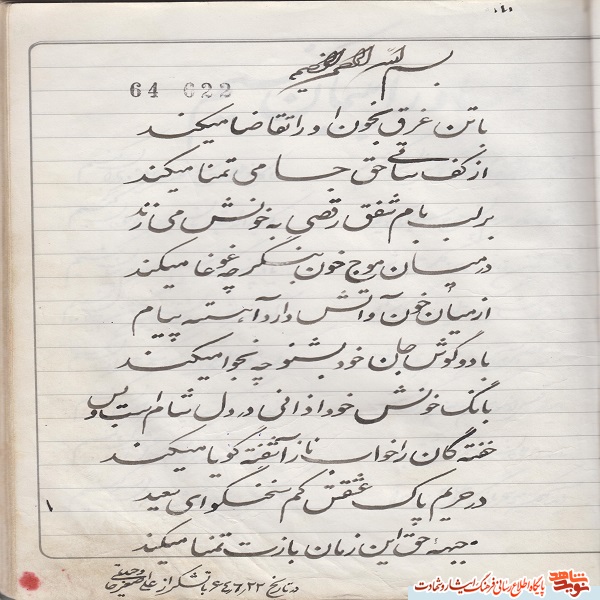 بسم الله الرحمن الرحیم
64 622
با تن غرق بخون او را تقاضا میکند
از کف ساقی حق جامی تمنا میکند
بر لب بام شفق رقصی به خونش می زند
در میان موج خون بنگر چه غوغا میکند
از میان خون و آتش دارد آهسته پیام
با دو گوش جان خود بشنو چه نجوا میکند
بانگ خونش خود اذانی در دل شام است و بس
خفته گان را خواب ناز آشفته گویا میکند
در حریم پاک عشقش کم سخنگو ای سعید
جبهۀ حق این زمان بازت تمنا میکند
در تاریخ ۶۴/۶/۲۲ با تشکر از علی
۱
پایگاه اطلاع رسانی فرهنگ ایثار و شهادت
نوید شاهد